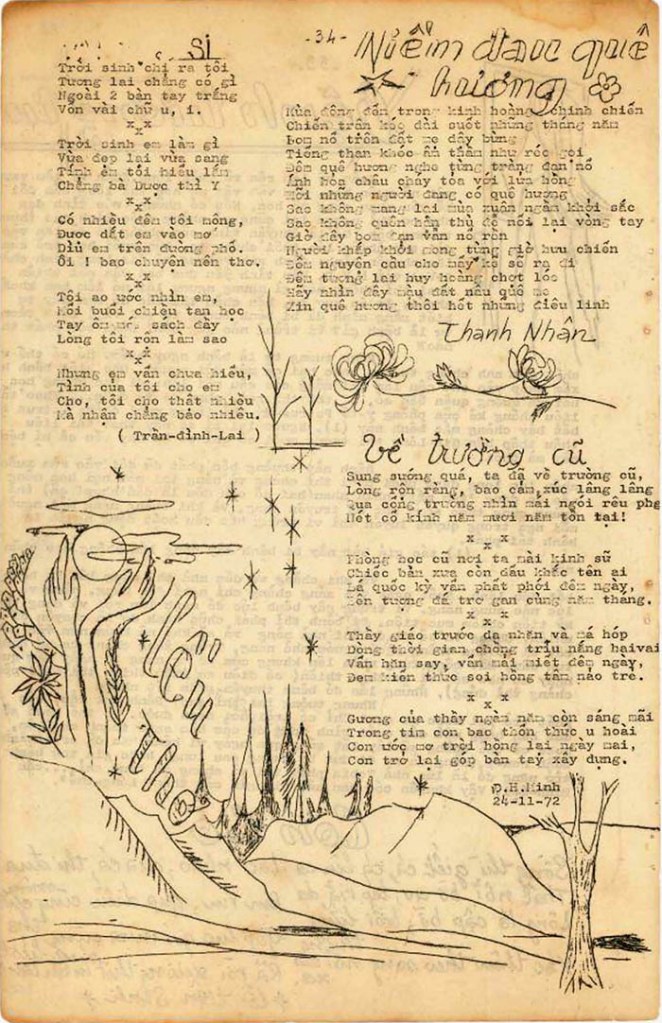 -34-
Si
Trời sinh chỉ ra tôi
Tương lai chẳng có gì
Ngoài 2 bàn tay trắng
Vỏn vài chữ u, i.
x x x
Trời sinh em làm gì
Vừa đẹp lại vừa sang
Tính em tôi hiểu lắm
Chẳng bà Dược thì Y
x x x
Có nhiều đêm tôi mộng,
Được dắt em vào mơ
Dìu em trên đường phố.
Ôi ! bao chuyện nên thơ.
x x x
Tôi ao ước nhìn em,
Mỗi buổi chiều tan học
Tay ôm sách dầy
Lòng tôi rộn làm sao
x x x
Nhưng em vẫn chưa hiểu,
Tình của tôi cho em
Cho, tôi cho thật nhiều
Mà nhận chẳng bao nhiêu.
( Trần-đình-Lai )
Niềm đau quê
hương
Mùa đông đến trong kinh hoàng chinh chiến
Chiến trận kéo dài suốt những tháng năm
Bom nổ trên đất mẹ dậy bừng
Tiếng than khóc âm thầm như réo gọi
Đêm quê hương nghe từng tràng đạn nổ
Ánh hỏa châu cháy tỏa với lửa hồng
Hỡi những người đang có quê hương
Sao không mang lại mùa xuân ngàn khởi sắc
Sao không quên hận thù để nối lại vòng tay
Giờ đây bom đạn vẫn nổ rộn
Người khấp khởi mong từng giờ hưu chiến
nguyện cầu cho mấy kẻ sẽ ra đi
Đêm tương lai huy hoàng chợt lóe
Hãy nhìn đây mầu đất nâu quê mẹ
Xin quê hương thôi hết những điêu linh
Thanh Nhân
Về trường cũ
Sung sướng quá, ta đã về trường cũ,
Lòng rộn ràng, bao cảm xúc lâng lâng
Qua cổng trường nhìn mái ngói rêu phg
Nét cổ kính năm mươi năm tồn tại!
x x x
Phòng học cũ nơi ta mài kinh sử
Chiếc bàn xưa còn dấu khắc tên ai
Lá quốc kỳ vẫn phất phới đêm ngày,
Bên tượng đá trơ gan cùng năm tháng.
x x x
Thầy giáo trước da nhăn và má hóp
Dòng thời gian chồng trĩu nặng haivai
Vẫn hăn say, vẫn mải miết đêm ngày,
Đem kiến thức soi hồng tâm não trẻ.
x x x
Gương của thầy ngàn năm còn sáng mãi
Trong tim con bao thổn thức u hoài
Con ước mơ trời hồng lại ngày mai,
Con trở lại góp bàn tay xây dựng.
D.H.Minh
24-11-72
lều
Thơ